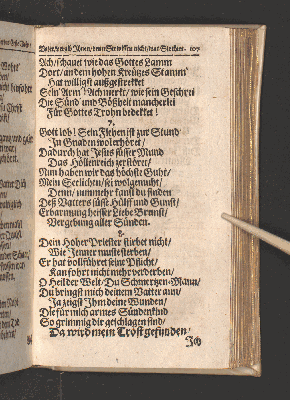 Ach/ schauet wie das Gottes Lamm
Dort/ an dem hohen Kreutzes Stamm'
Hat willigst außgestrecket
Sein' Arm'! Ach merkt/ wie sein Geschrei
Die Sünd' und Bößheit mancherlei
Für Gottes Trohn bedekket!
7.
Gott lob! Sein Flehen ist zur Stund
In Gnaden wol erhöret/
Dadurch hat Jesus süsser Mund
Das Höllenreich zerstöret/
Nun haben wir das höchste Guht/
Mein Seelichen/ sei wolgemuht/
Denn/ nunmehr kanst du finden
Deß Vatters süsse Hülff' und Gunst/
Erbarmung/ heisser Liebe Brunst/
Vergebung aller Sünden.
8.
Dein Hoher Priester stirbet nicht/
Wie Jenner muste sterben/
Er hat vollführet seine Pflicht/
Kan fohrt nicht mehr verderben/
O Heil der Welt/ Du Schmertzen-Mann/
Du bringst mich deinem Vatter an/
Ja zeigst Ihm deine Wunden/
Die für mich armes Sündenkind
So grimmig dir geschlagen sind/
Da wird mein Trost gefunden/
Ich